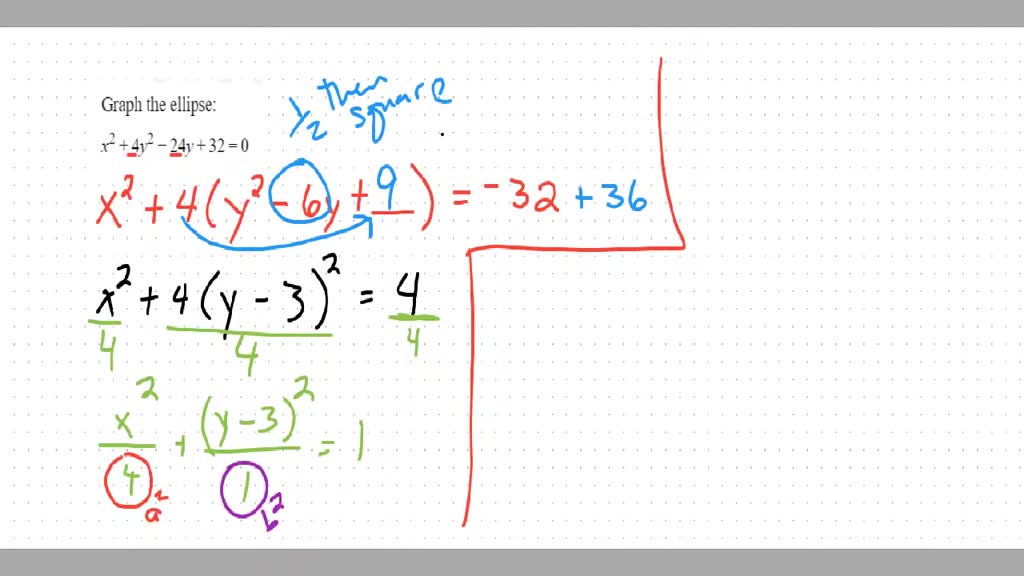 Graph the ellipse:
x² + 4y² − 24y + 32 = 0
1/2 then square
x² + 4(y² − 6y + 9) = -32 + 36
x² + 4(y − 3)² = 4
4 4 4
x² + (y − 3)² = 1
4 1
a² b²